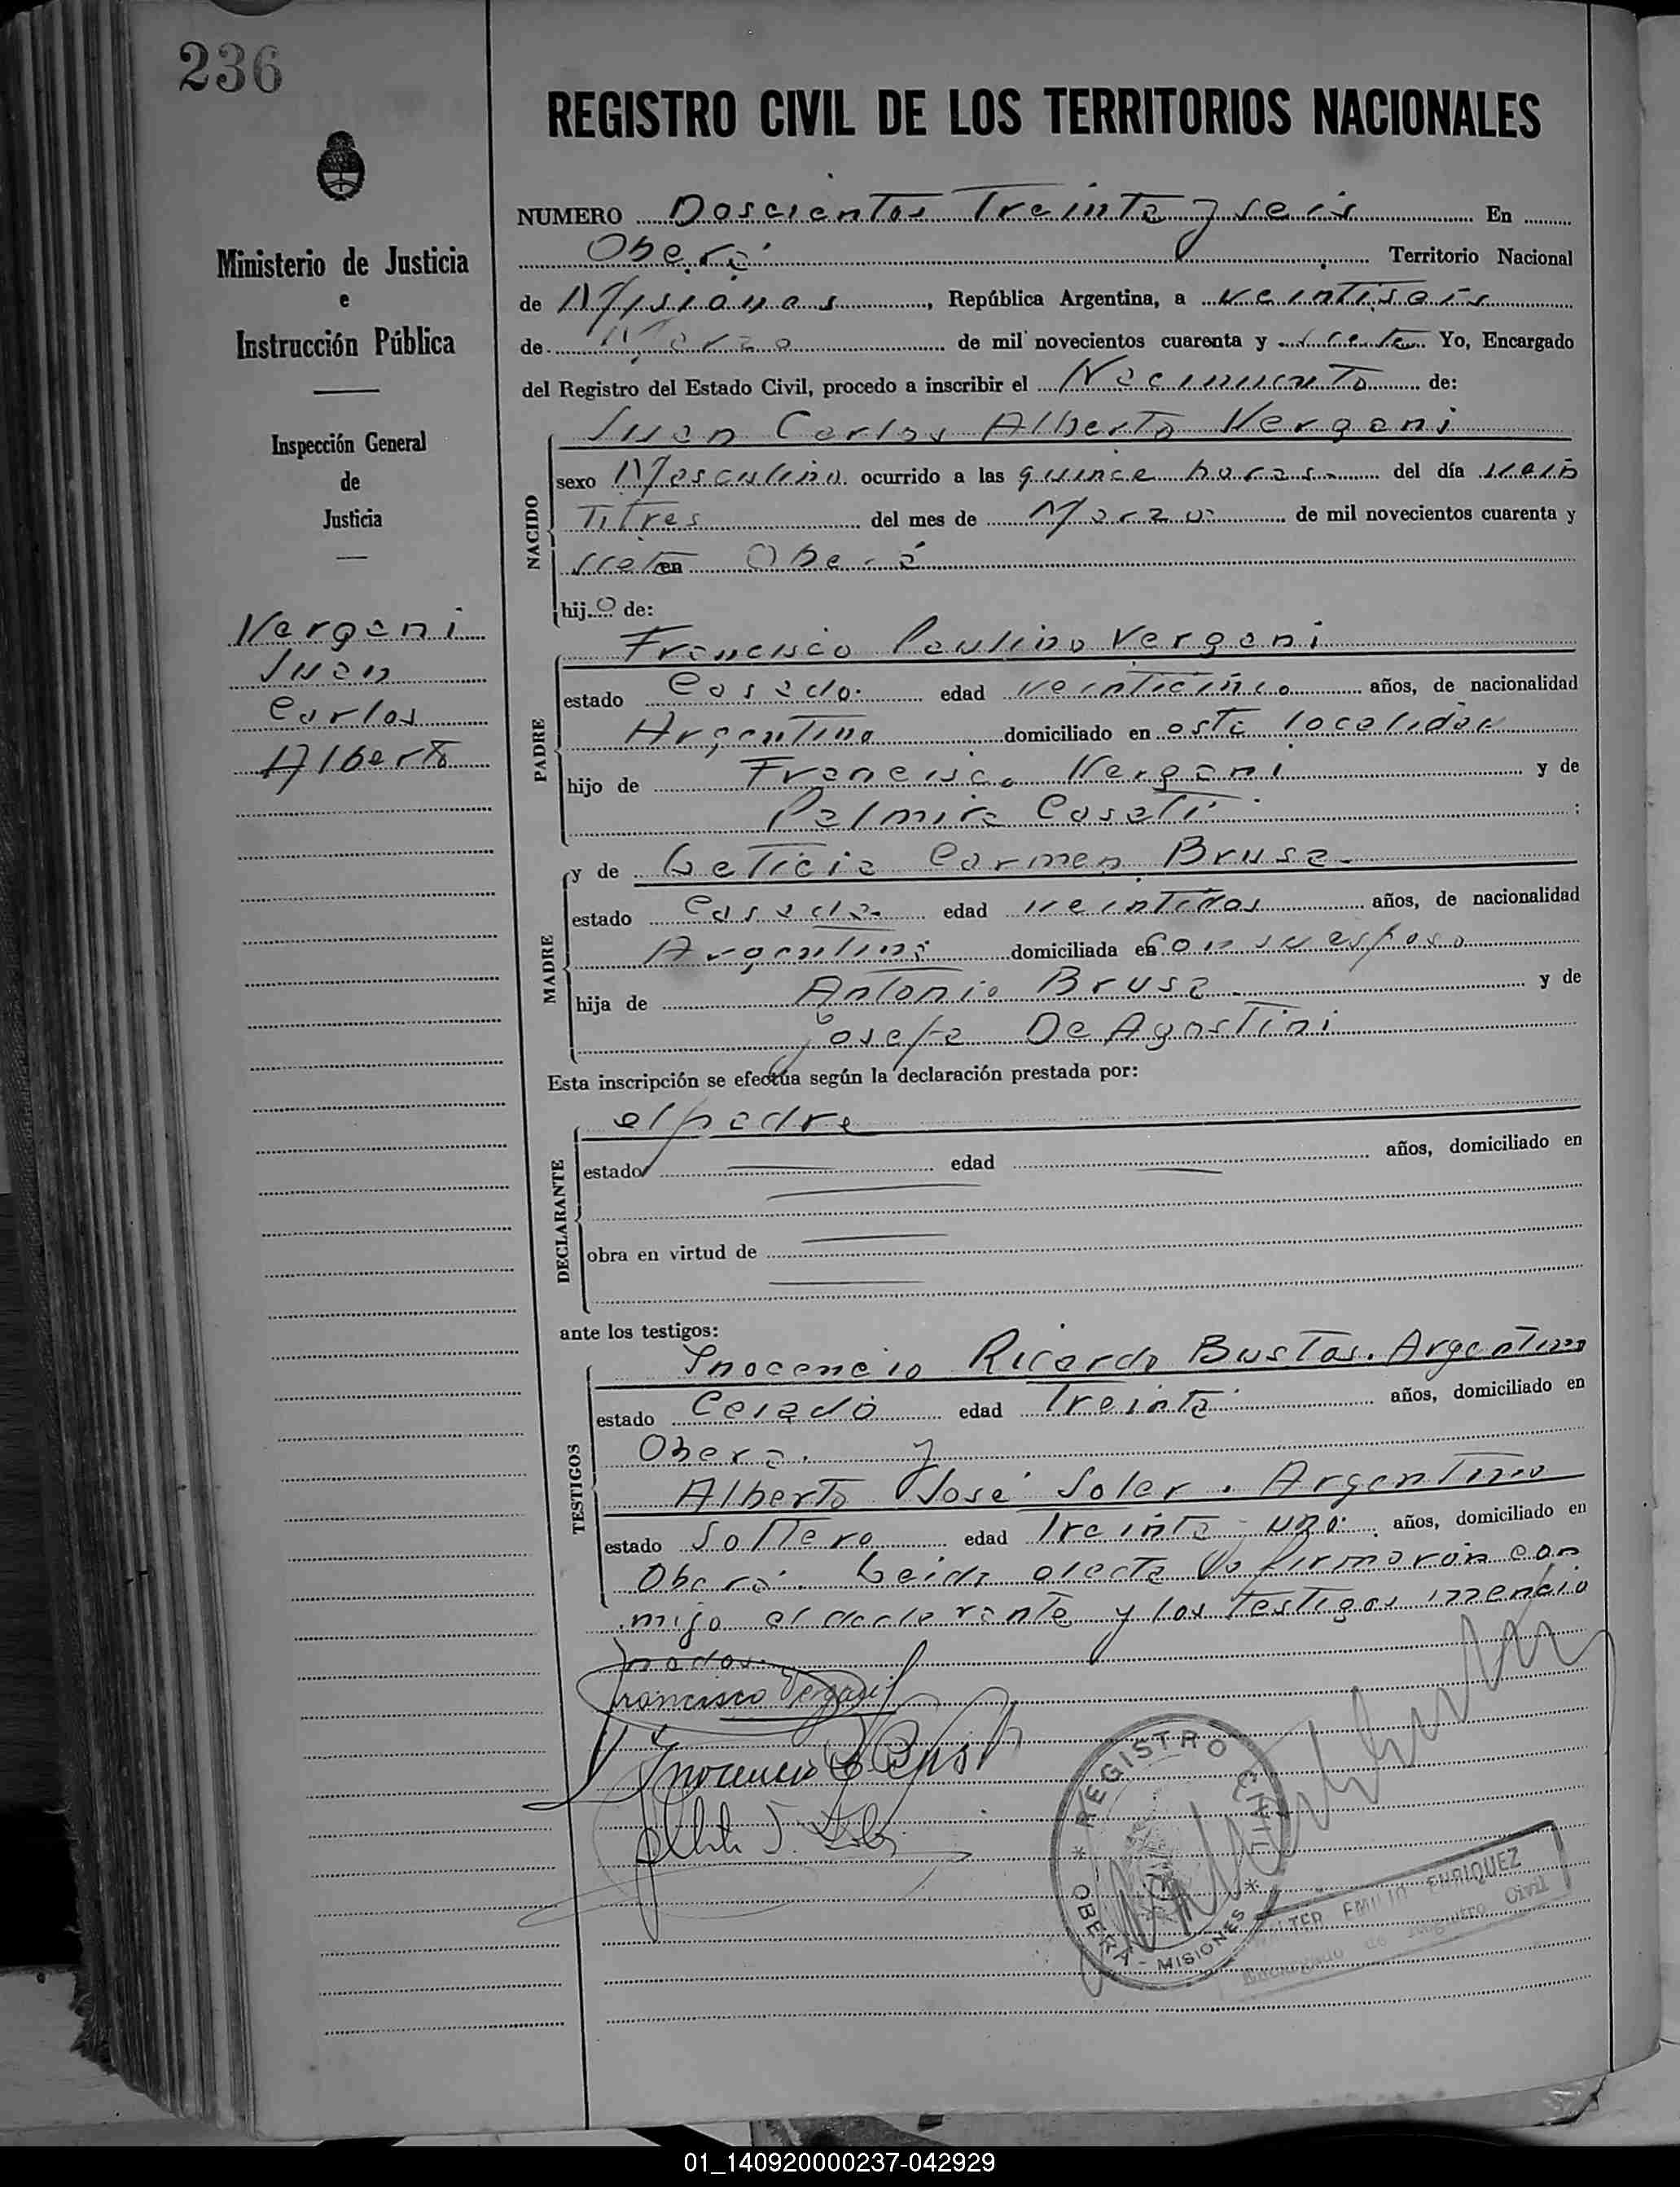 236
REGISTRO CIVIL DE LOS TERRITORIOS NACIONALES
Ministerio de Justicia
e
Instrucción Pública
Inspección General
de
Justicia
Vergani
Juan
Carlos
Alberto
NUMERO Doscientos Treinta y seis En
Oberá Territorio Nacional
de Misiones, República Argentina, a veintiseis
de Marzo de mil novecientos cuarenta y siete Yo, Encargado
del Registro del Estado Civil, procedo a inscribir el Nacimiento de:
NACIDO
Juan Carlos Alberto Vergani
sexo Masculino ocurrido a las quince horas del día vein
titres del mes de Marzo de mil novecientos cuarenta y
siete en Oberá
hijo de:
PADRE
Francisco Paulino Vergani
estado Casado edad veinticinco años, de nacionalidad
Argentina domiciliado en esta localidad
hijo de Francisco Vergani y de
Palmira Casati
MADRE
y de Leticia Carmen Brusa
estado Casada edad veintidos años, de nacionalidad
Argentina domiciliada en con su esposo
hija de Antonio Brusa y de
Josefa De Agostini
Esta inscripción se efectúa según la declaración prestada por:
DECLARANTE
el padre
estado edad años, domiciliado en
obra en virtud de
ante los testigos:
TESTIGOS
Inocencio Ricardo Bustos. Argentino
estado Casado edad Treinta años, domiciliado en
Oberá. y
Alberto José Soler. Argentino
estado Soltero edad Treinta y uno años, domiciliado en
Oberá. Leida el acta la firmaron con
migo el declarante y los testigos mencio
nados.
Francisco Vergani
Inocencio R Bust
Alberto J. Soler
REGISTRO CIVIL
* OBERÁ - MISIONES *
WALTER EMILIO ENRIQUEZ
Encargado de Registro Civil
01_140920000237-042929